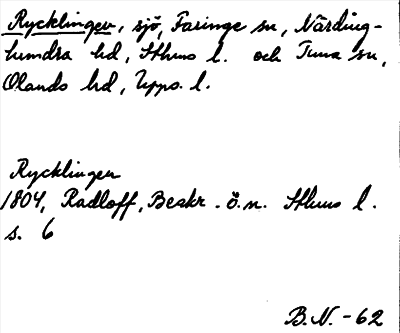 Rycklingen, sjö, Faringe sn, Närding-
hundra hd, Sthms l. och Tuna sn,
Olands hd, Upps. l.
Rycklingen
1804, Radloff, Beskr. ö. n. Sthms l.
s. 6
B.N. -62